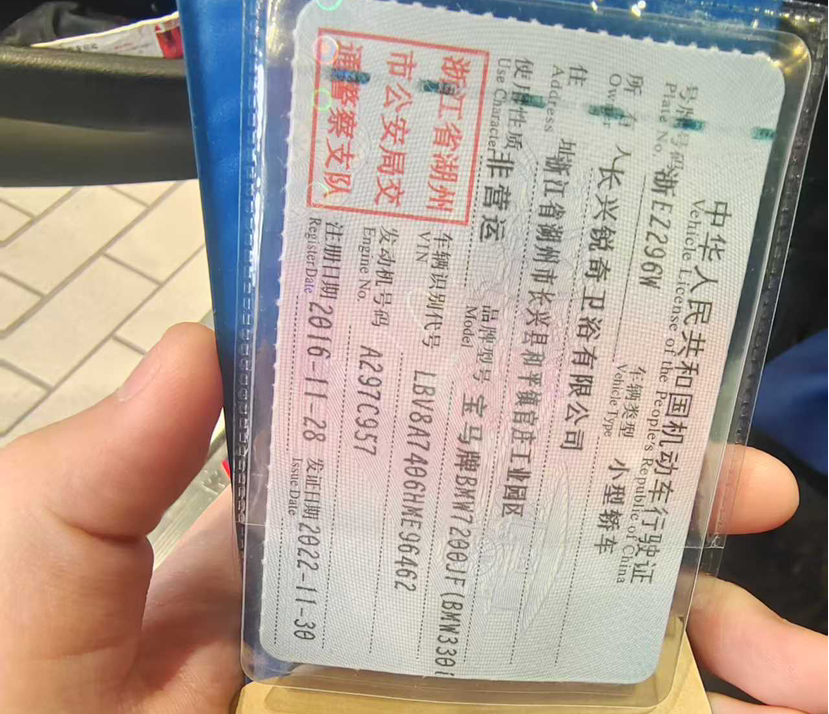 中华人民共和国机动车行驶证
Vehicle License of the People's Republic of China
号牌号码 浙EZ296W 车辆类型 小型轿车
Plate No. Vehicle Type
所有人 长兴锐奇卫浴有限公司
Owner
住 址 浙江省湖州市长兴县和平镇官庄工业园区
Address
使用性质 非营运 品牌型号 宝马牌BMW7200JF(BMW330i
Use Character Model
浙江省湖州
市公安局交
通警察支队
车辆识别代号 LBV8A7406HME96462
VIN
发动机号码 A297C957
Engine No.
注册日期 2016-11-28 发证日期 2022-11-30
Register Date Issue Date